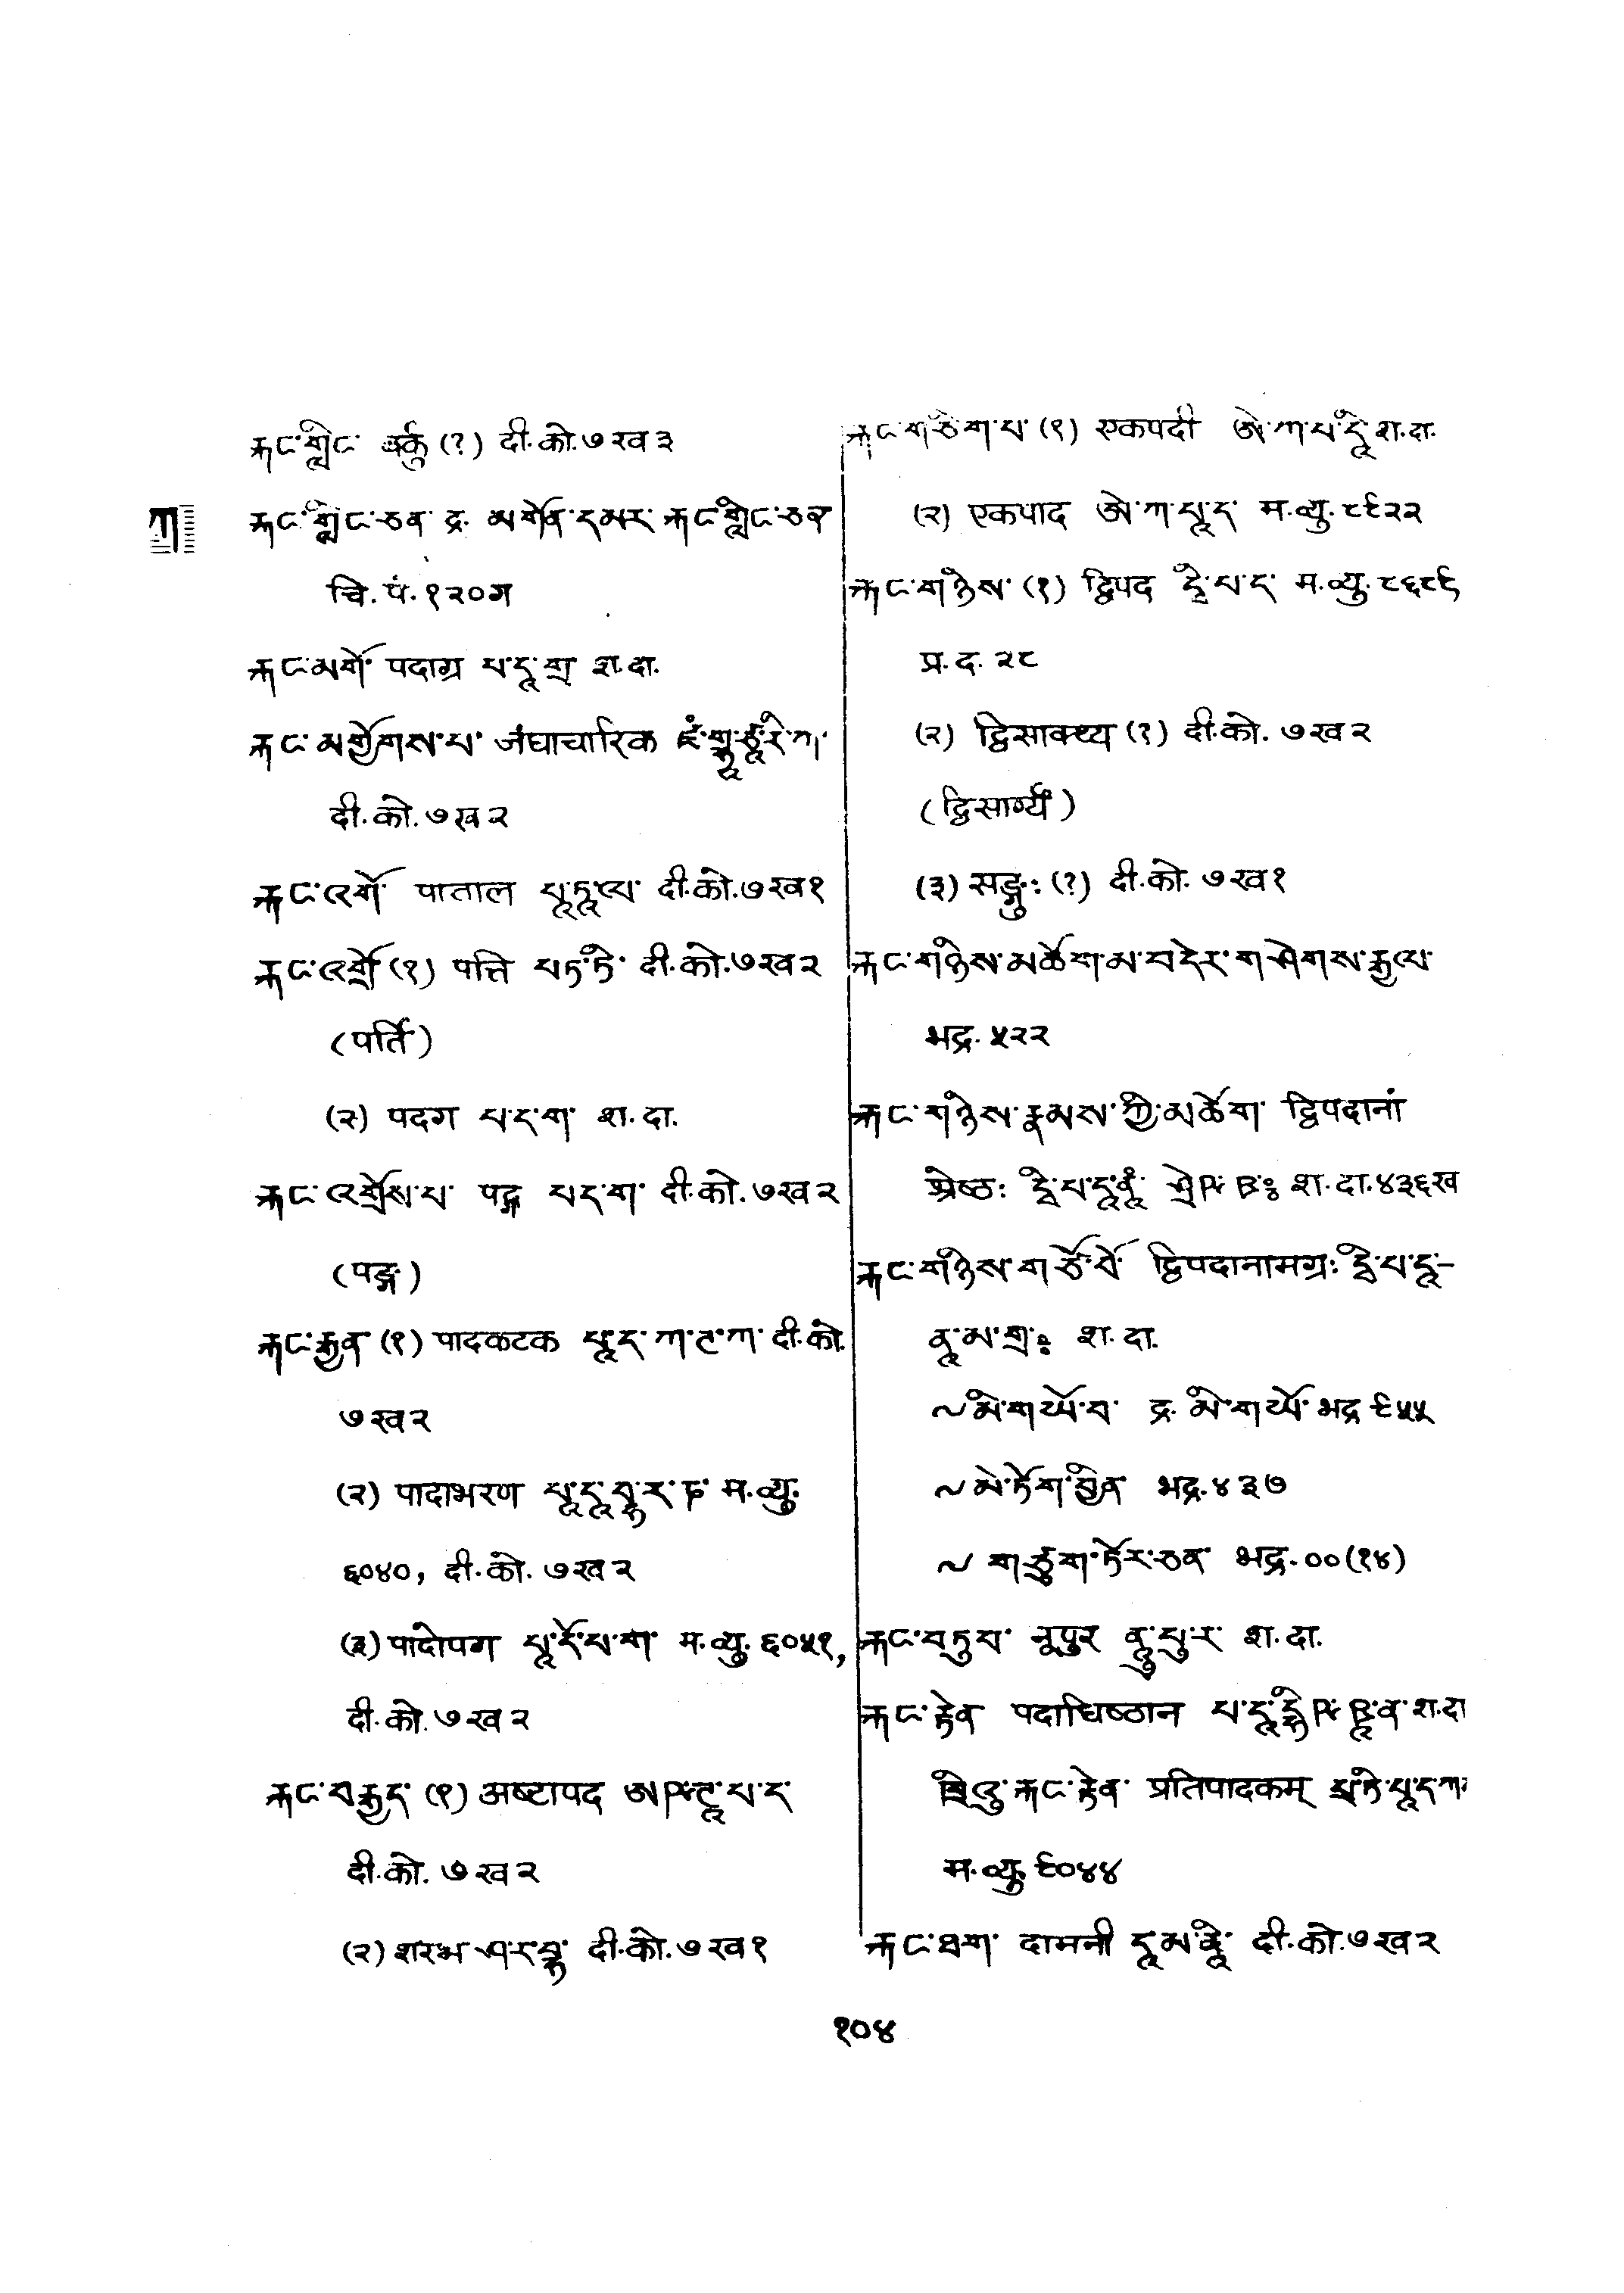 རྐང་གླིང་ (?) दी.को.७ख३
རྐང་གླིང་ཅན་ द्र. མགོན་དམར་རྐང་གླིང་ཅན་
चि.पं.१२०ग
རྐང་མགོ་ पदाग्र པ་དཱ་གྲ श.दा.
རྐང་མགྱོགས་པ་ जंघाचारिक ཛཾ་གྷཱ་ཙཱ་རི་ཀ་
दी.को.७ख२
རྐང་འགོ་ पाताल པཱ་ཏཱ་ལ་ दी.को.७ख१
རྐང་འགྲོ (१) पत्ति པཏ་ཏི་ दी.को.७ख२
(पर्ति)
(२) पदग པ་ད་ག་ श.दा.
རྐང་འགྲོས་པ་ पद्ग པད་ག་ दी.को.७ख२
(पङ्ग)
རྐང་རྒྱན་ (१) पादकटक པཱ་ད་ཀ་ཊ་ཀ་ दी.को.
७ख२
(२) पादाभरण པཱ་དཱ་བྷ་ར་ཎ་ म.व्यु.
६०४०, दी.को.७ख२
(३) पादोपग པཱ་དོ་པ་ག་ म.व्यु.६०५१,
दी.को.७ख२
རྐང་བརྒྱད་ (१) अष्टापद ཨཥ་ཊཱ་པ་ད་
दी.को.७ख२
(२) शरभ ཤ་ར་བྷ་ दी.को.७ख१
ཀ
རྐང་གཅིག་པ་ (१) एकपदी ཨེ་ཀ་པ་དཱི་ श.दा.
(२) एकपाद ཨེ་ཀ་པཱ་ད་ म.व्यु.८९२२
རྐང་གཉིས་ (१) द्विपद དྭི་པ་ད་ म.व्यु.८६८९
प्र.द.२८
(२) द्विसाक्थ्य (?) दी.को.७ख२
(द्विसार्ग्यं)
(३) सङ्गुः (?) दी.को.७ख१
རྐང་གཉིས་མཆོག་མ་བདེར་གཤེགས་རྒྱལ་
भद्र.५२२
རྐང་གཉིས་རྣམས་ཀྱི་མཆོག་ द्विपदानां
श्रेष्ठः དྭི་པ་དཱ་ནཱཾ་ ཤྲེཥ་ཋཿ श.दा.४३६ख
རྐང་གཉིས་གཙོ་བོ་ द्विपदानामग्रः དྭི་པ་དཱ་-
ནཱ་མ་གྲཿ श.दा.
~མི་གཡོ་བ་ द्र. མི་གཡོ་ भद्र ९५५
~མེ་ཏོག་བྱིན་ भद्र.४३७
~གཙུག་ཏོར་ཅན་ भद्र.००(१४)
རྐང་བཏུབ་ नूपुर ནཱུ་པུ་ར་ श.दा.
རྐང་རྟེན་ पदाधिष्ठान པ་དཱ་དྷི་ཥ་ཋཱ་ན་ श.दा
ཁྲིའུ་རྐང་རྟེན་ प्रतिपादकम् པྲ་ཏི་པཱ་ད་ཀ
म.व्यु.९०४४
རྐང་ཐག་ दामनी དཱ་མ་ནཱི་ दी.को.७ख२
१०४